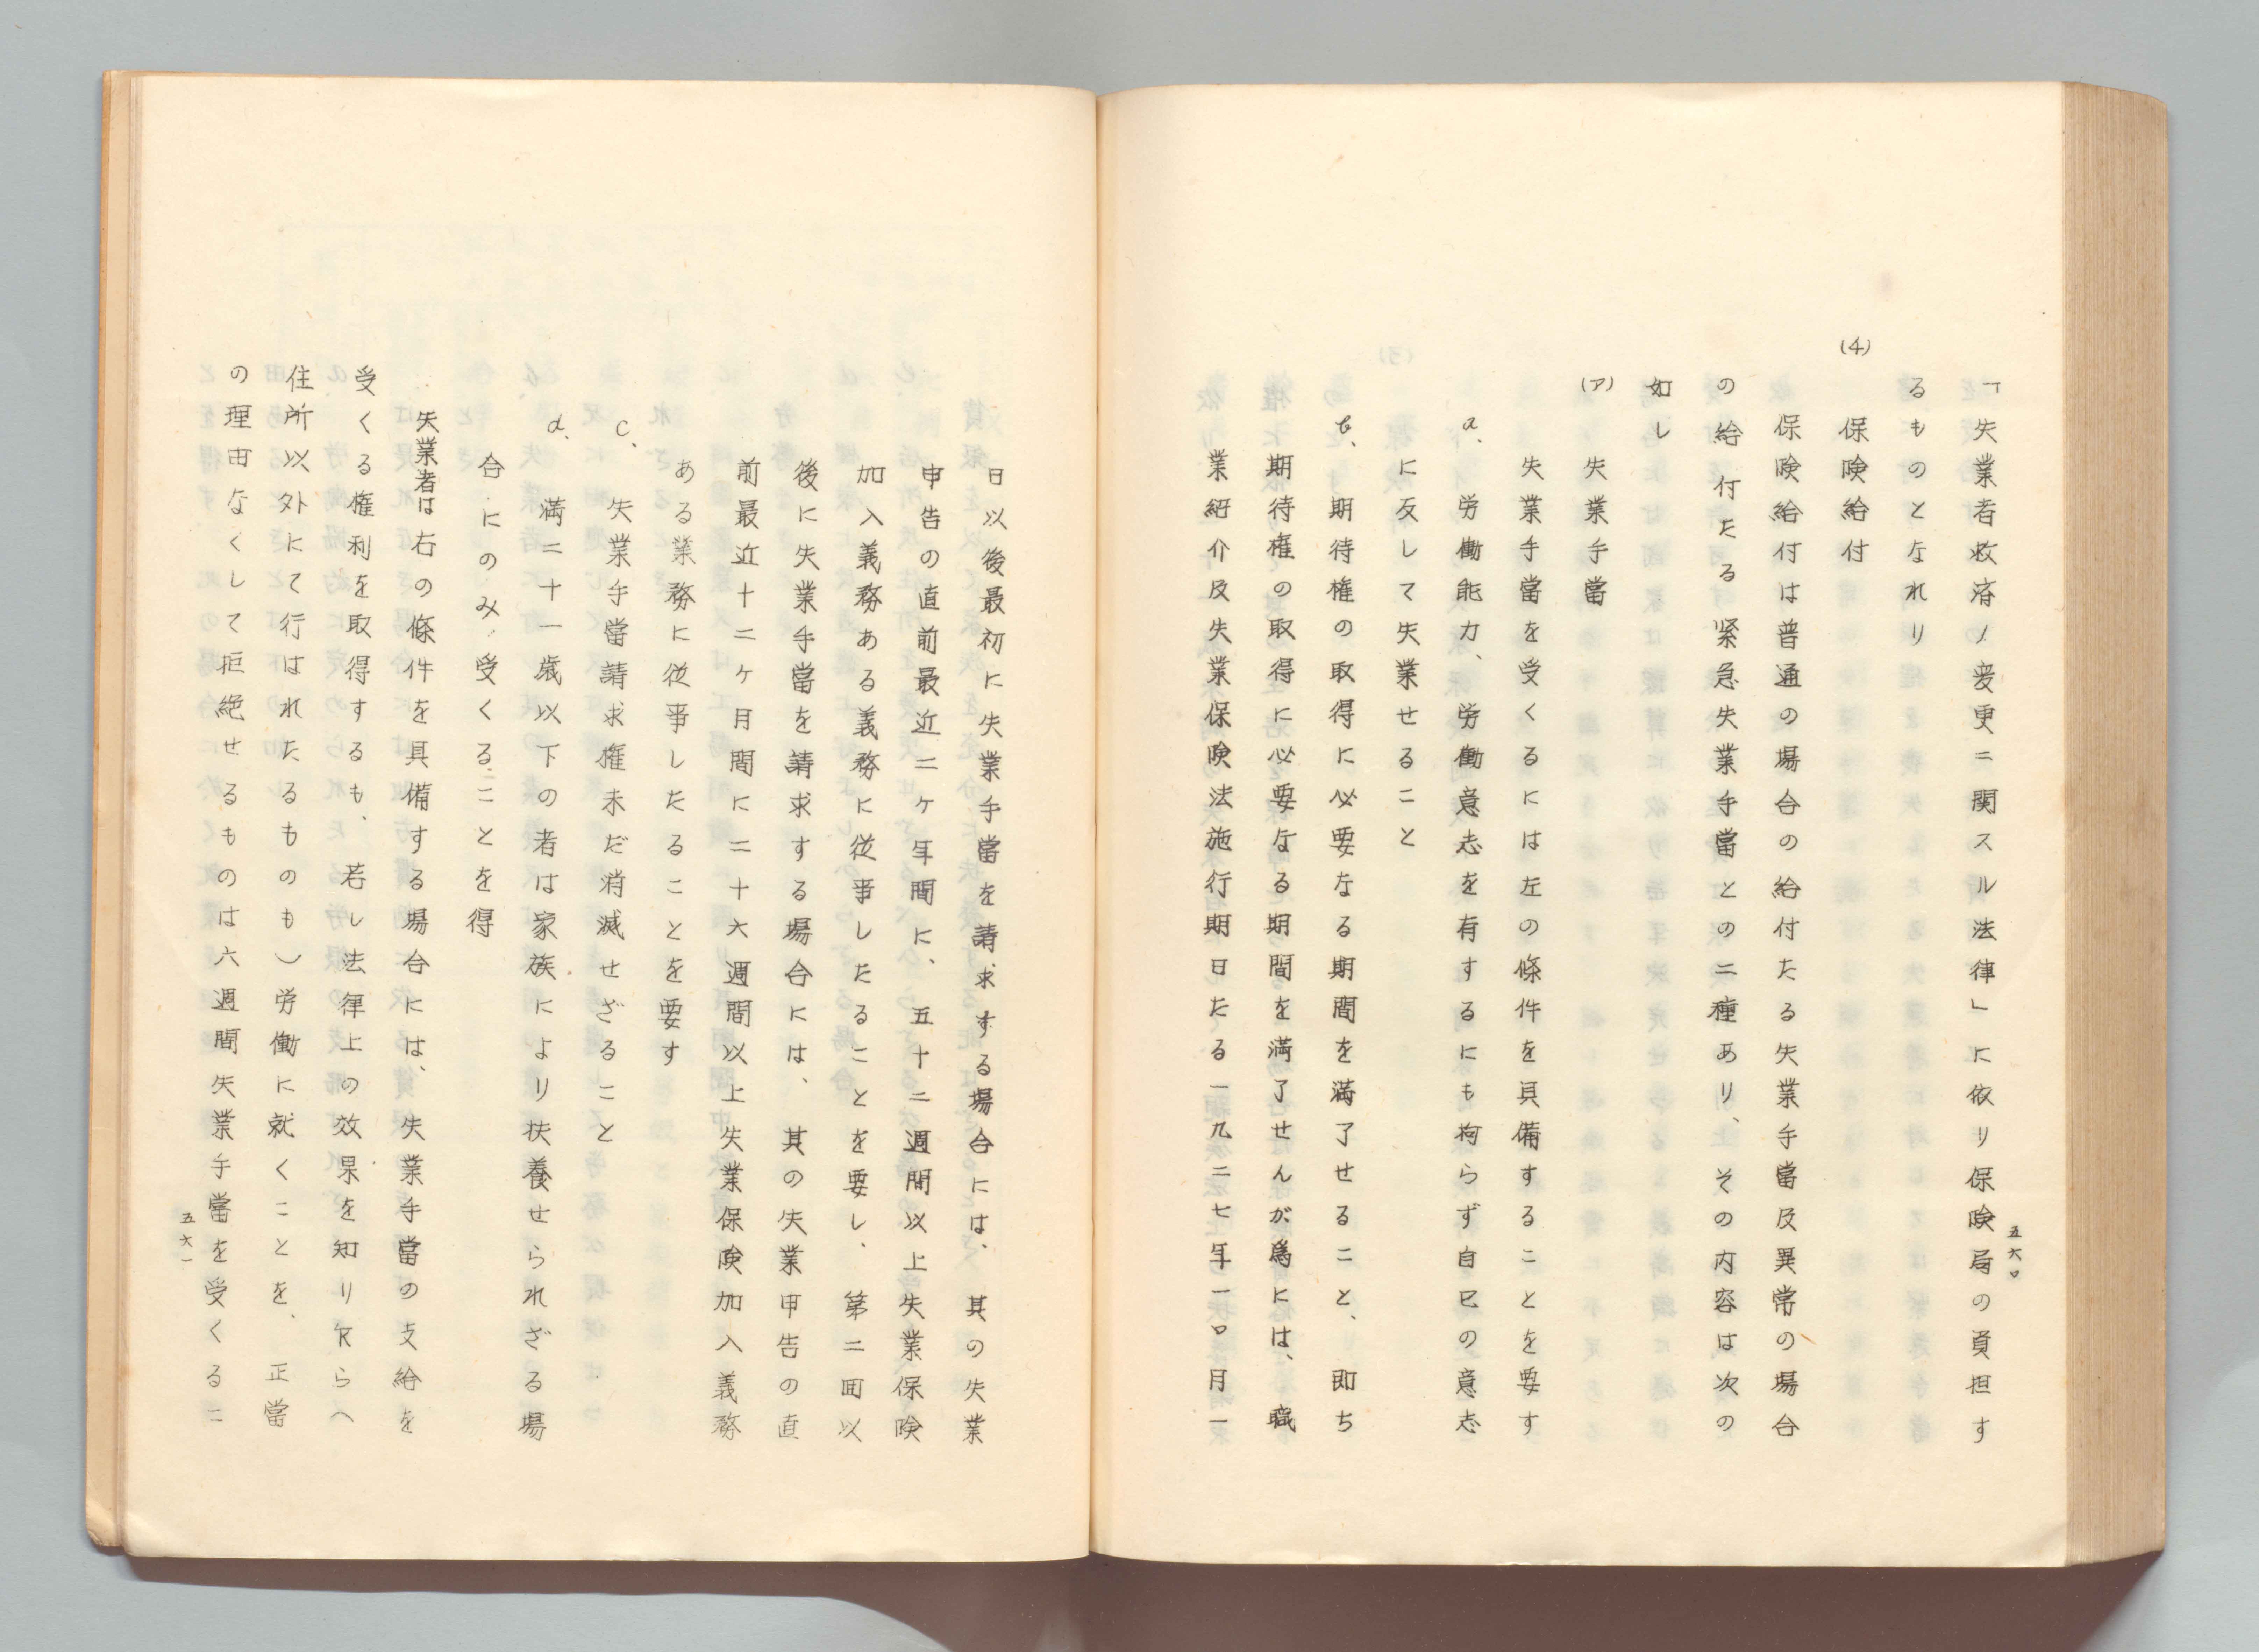 「失業者救済ノ変更ニ関スル法律」に依リ保険局の負担す
るものとなれり
(4)
保険給付
保険給付は普通の場合の給付たる失業手當及異常の場合
の給付たる緊急失業手當との二種あり、その内容は次の
如し
(ア) 失業手當
失業手當を受くるには左の條件を具備することを要す
a、労働能力、労働意志を有するにも拘らず自己の意志
に反して失業せること
b、期待権の取得に必要なる期間を満了せること、即ち
期待権の取得に必要なる期間を満了せんが爲には、職
業紹介及失業保険法施行期日たる一九二七年一〇月一
五六〇
日以後最初に失業手當を請求する場合には、其の失業
申告の直前最近二ヶ年間に、五十二週間以上失業保険
加入義務ある義務に従事したることを要し、第二回以
後に失業手當を請求する場合には、其の失業申告の直
前最近十二ヶ月間に二十六週間以上失業保険加入義務
ある業務に従事したることを要す
c、失業手當請求権未だ消滅せざること
d、満二十一歳以下の者は家族により扶養せられざる場
合にのみ受くることを得
失業者は右の條件を具備する場合には、失業手當の支給を
受くる権利を取得するも、若し法律上の效果を知り乍らへ
住所以外にて行はれたるものも)労働に就くことを、正當
の理由なくして拒絶せるものは六週間失業手當を受くるこ
五六一